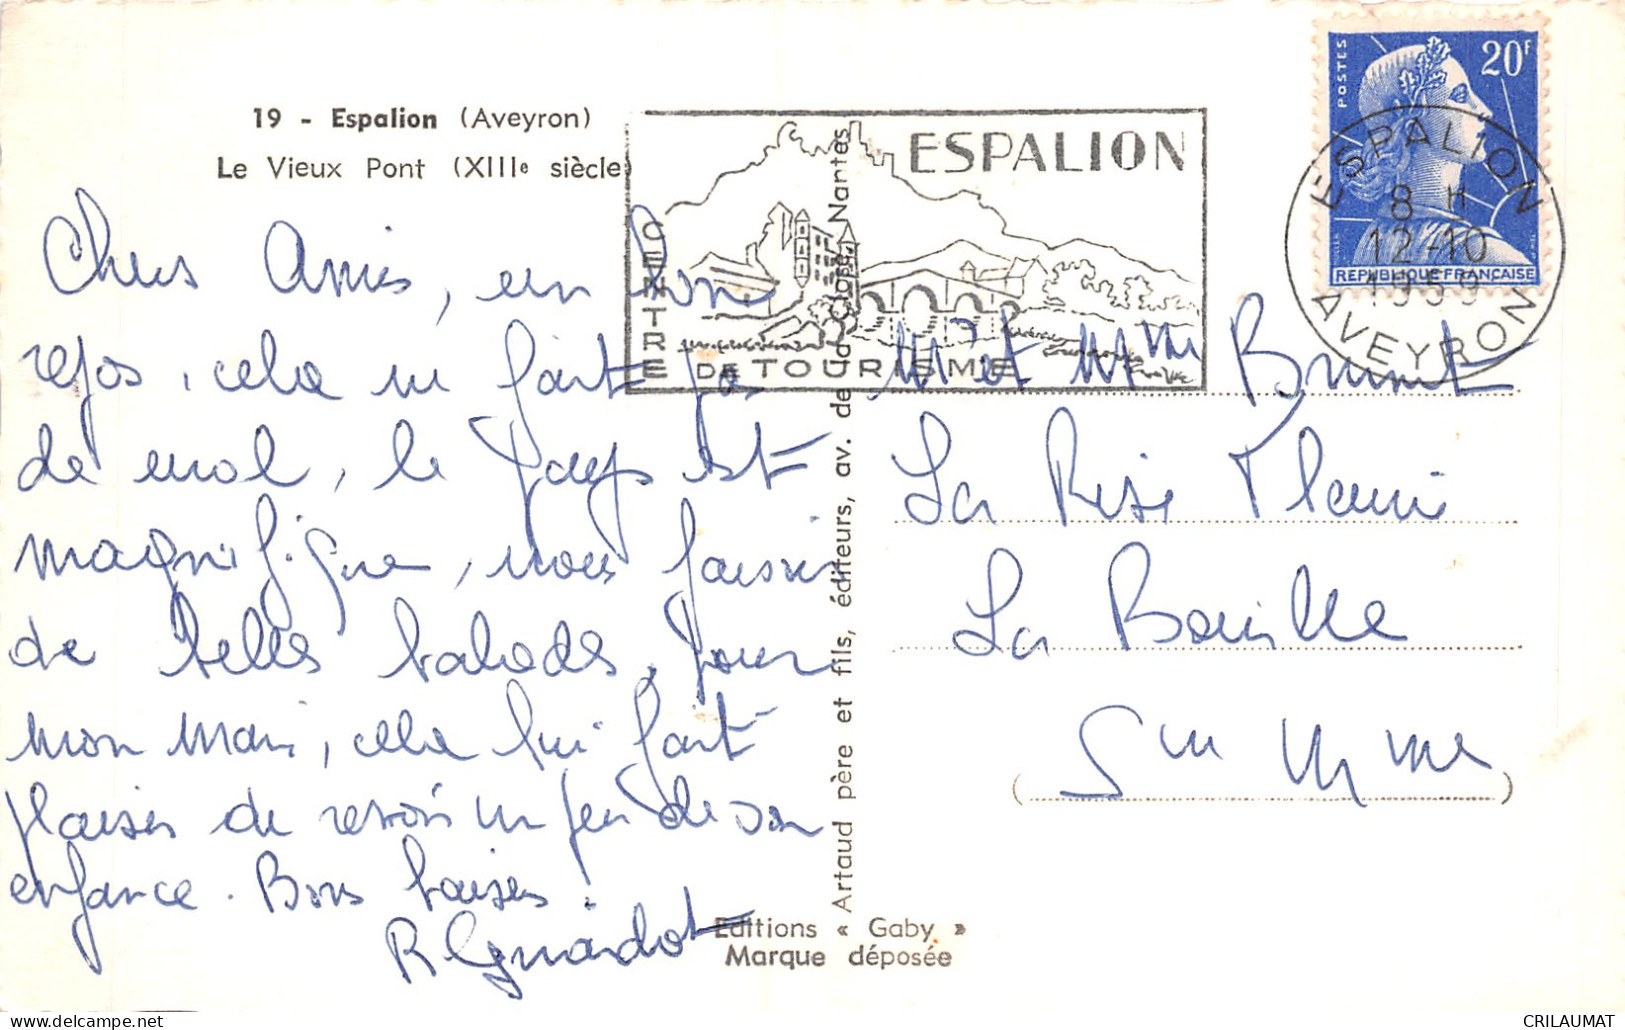 19 - Espalion (Aveyron)
Le Vieux Pont (XIIIe siècle)
ESPALION
CENTRE
DE TOURISME
POSTES
20F
REPUBLIQUE FRANÇAISE
ESPALION
8 H
12-10
1959
AVEYRON
Chers Amis, un bon
repos, cela ne fait pas
de mal, le pays est
magnifique, nous faisons
de belles balades, pour
mon mari, cela lui fait
plaisir de revoir un peu de son
enfance. Bons baisers.
R
M et Mme Brunet
La Rise
La Bouille
Sne Mme
Artaud père et fils, éditeurs, av. de la Close, Nantes
Editions « Gaby »
Marque déposée
CRILAUMAT